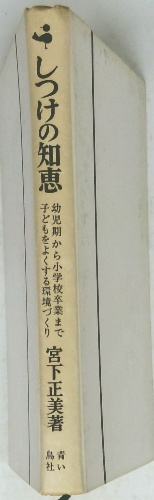 しつけの知恵
幼児期から小学校卒業まで
子どもをよくする環境づくり
宮下正美著
青い
鳥社